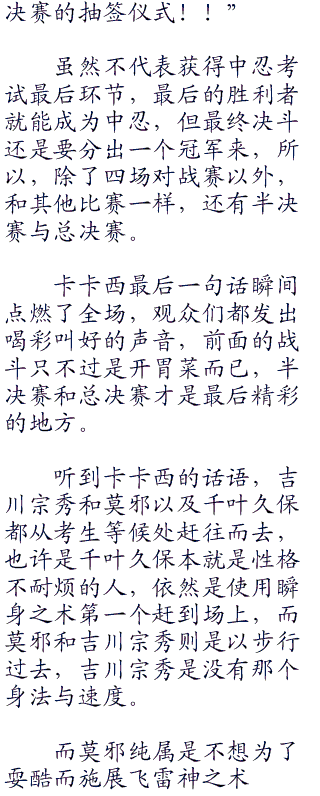 决赛的抽签仪式！！”
虽然不代表获得中忍考
试最后环节，最后的胜利者
就能成为中忍，但最终决斗
还是要分出一个冠军来，所
以，除了四场对战赛以外，
和其他比赛一样，还有半决
赛与总决赛。
卡卡西最后一句话瞬间
点燃了全场，观众们都发出
喝彩叫好的声音，前面的战
斗只不过是开胃菜而已，半
决赛和总决赛才是最后精彩
的地方。
听到卡卡西的话语，吉
川宗秀和莫邪以及千叶久保
都从考生等候处赶往而去，
也许是千叶久保本就是性格
不耐烦的人，依然是使用瞬
身之术第一个赶到场上，而
莫邪和吉川宗秀则是以步行
过去，吉川宗秀是没有那个
身法与速度。
而莫邪纯属是不想为了
耍酷而施展飞雷神之术